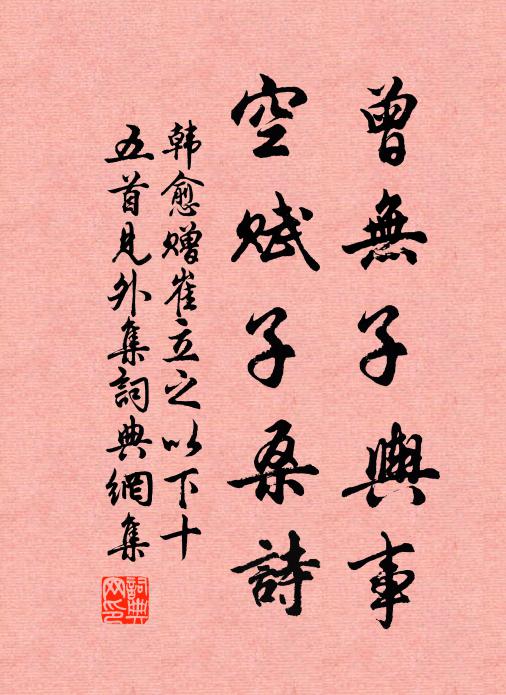 曾無子輿事
空賦子桑詩
韓愈贈崔立之以下十
五首見外集詞典網集
詞典網印